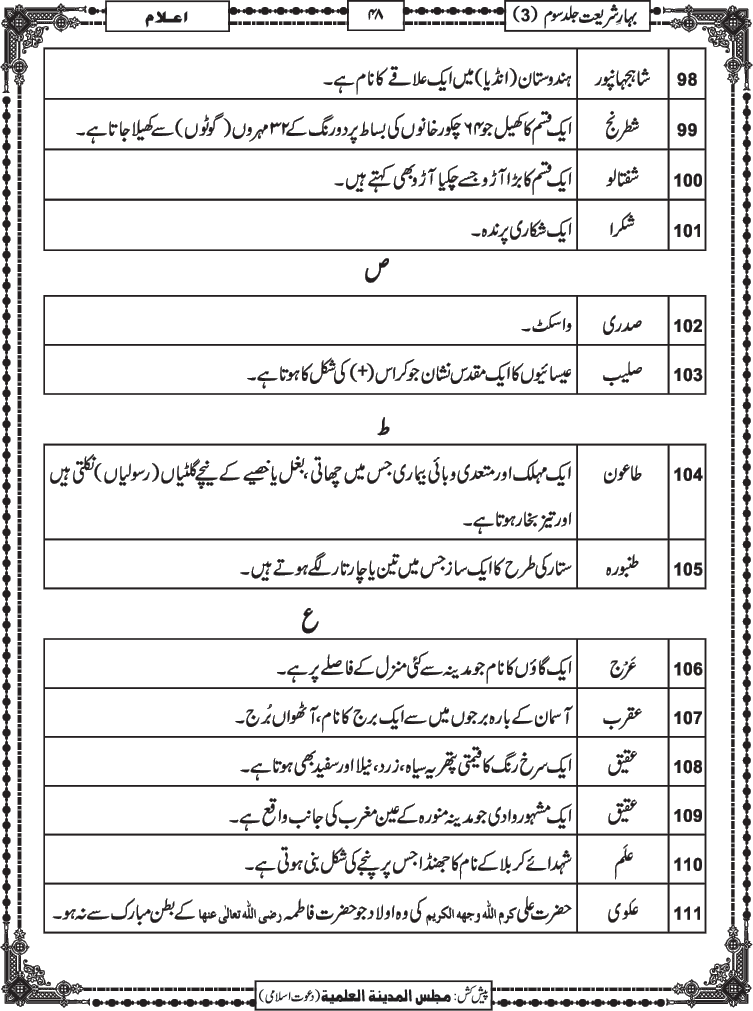 بہارِ شریعت جلد سوم (3)
۴۸
اعلام
98 شاہجہانپور ہندوستان (انڈیا) میں ایک علاقے کا نام ہے۔
99 شطرنج ایک قسم کا کھیل جو ۶۴ چکور خانوں کی بساط پر دو رنگ کے ۳۲ مہروں (گوٹوں) سے کھیلا جاتا ہے۔
100 شفتالو ایک قسم کا بڑا آڑو جسے چکیا آڑو بھی کہتے ہیں۔
101 شکرا ایک شکاری پرندہ۔
ص
102 صدری واسکٹ۔
103 صلیب عیسائیوں کا ایک مقدس نشان جو کراس (+) کی شکل کا ہوتا ہے۔
ط
104 طاعون ایک مہلک اور متعدی وبائی بیماری جس میں چھاتی، بغل یا خصیے کے نیچے گلٹیاں (رسولیاں) نکلتی ہیں
اور تیز بخار ہوتا ہے۔
105 طنبورہ ستار کی طرح کا ایک ساز جس میں تین یا چار تار لگے ہوتے ہیں۔
ع
106 عَرْج ایک گاؤں کا نام جو مدینہ سے کئی منزل کے فاصلے پر ہے۔
107 عقرب آسمان کے بارہ برجوں میں سے ایک برج کا نام، آٹھواں بُرج۔
108 عقیق ایک سرخ رنگ کا قیمتی پتھر یہ سیاہ، زرد، نیلا اور سفید بھی ہوتا ہے۔
109 عقیق ایک مشہور وادی جو مدینہ منورہ کے عین مغرب کی جانب واقع ہے۔
110 عَلَم شہدائے کربلا کے نام کا جھنڈا جس پر پنجے کی شکل بنی ہوتی ہے۔
111 علوی حضرت علی کرم اللہ وجھہ الکریم کی وہ اولاد جو حضرت فاطمہ رضی اللہ تعالٰی عنھا کے بطن مبارک سے نہ ہو۔
پیش کش: مجلس المدینۃ العلمیۃ (دعوت اسلامی)